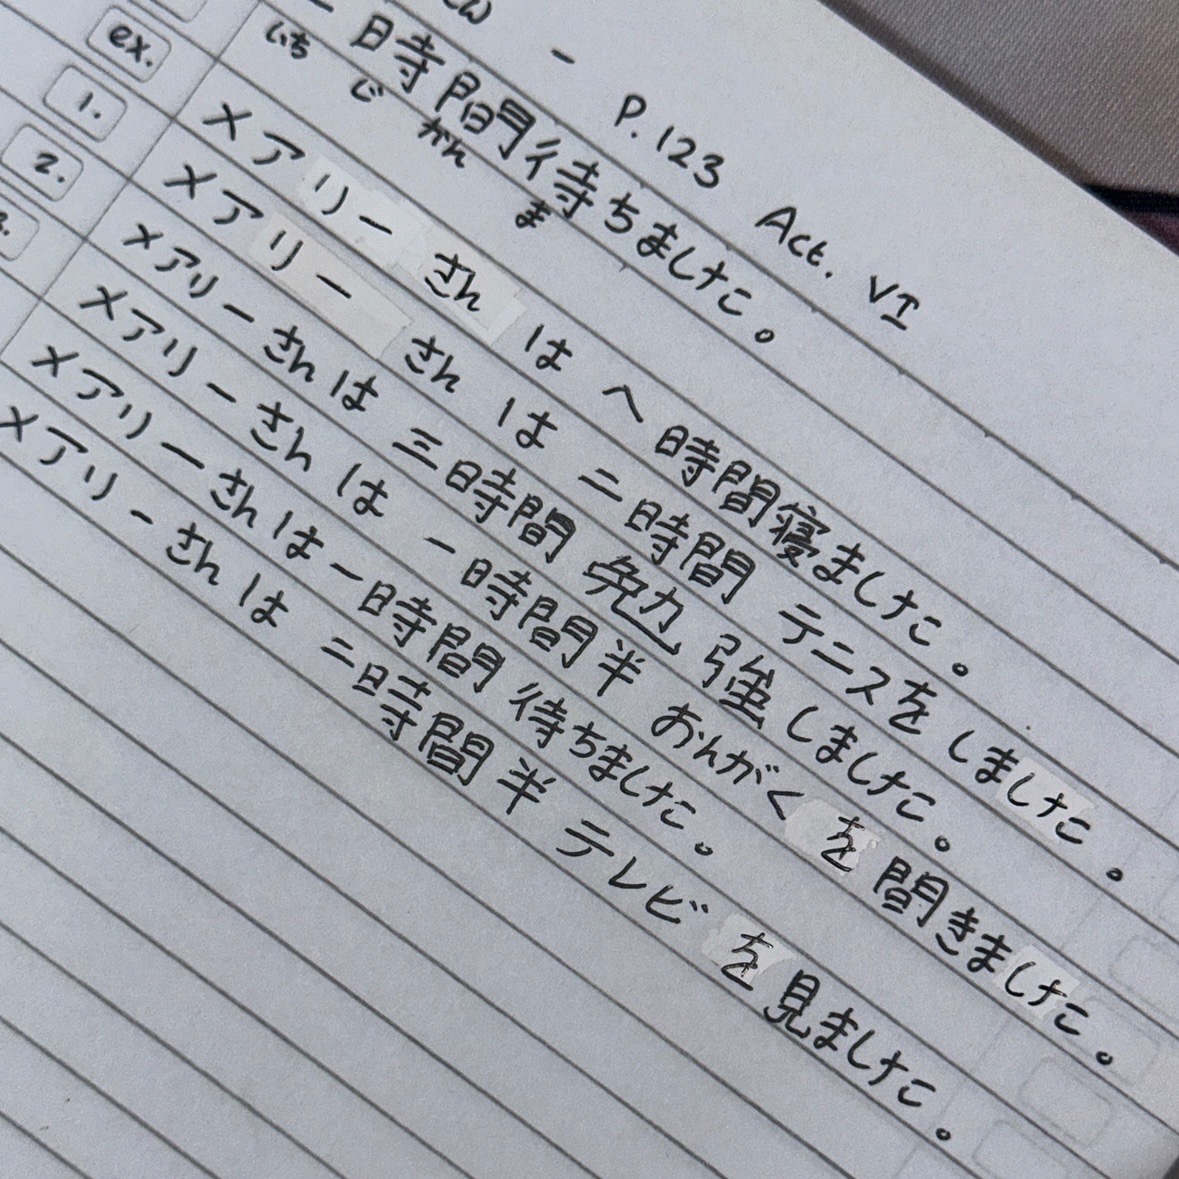 P.123 Act. VI
一時間待ちました。
いち じ かん ま
ex. メアリーさんは八時間寝ました。
1. メアリーさんは二時間テニスをしました。
2. メアリーさんは三時間勉強しました。
メアリーさんは一時間半おんがくを聞きました。
メアリーさんは一時間待ちました。
メアリーさんは二時間半テレビを見ました。